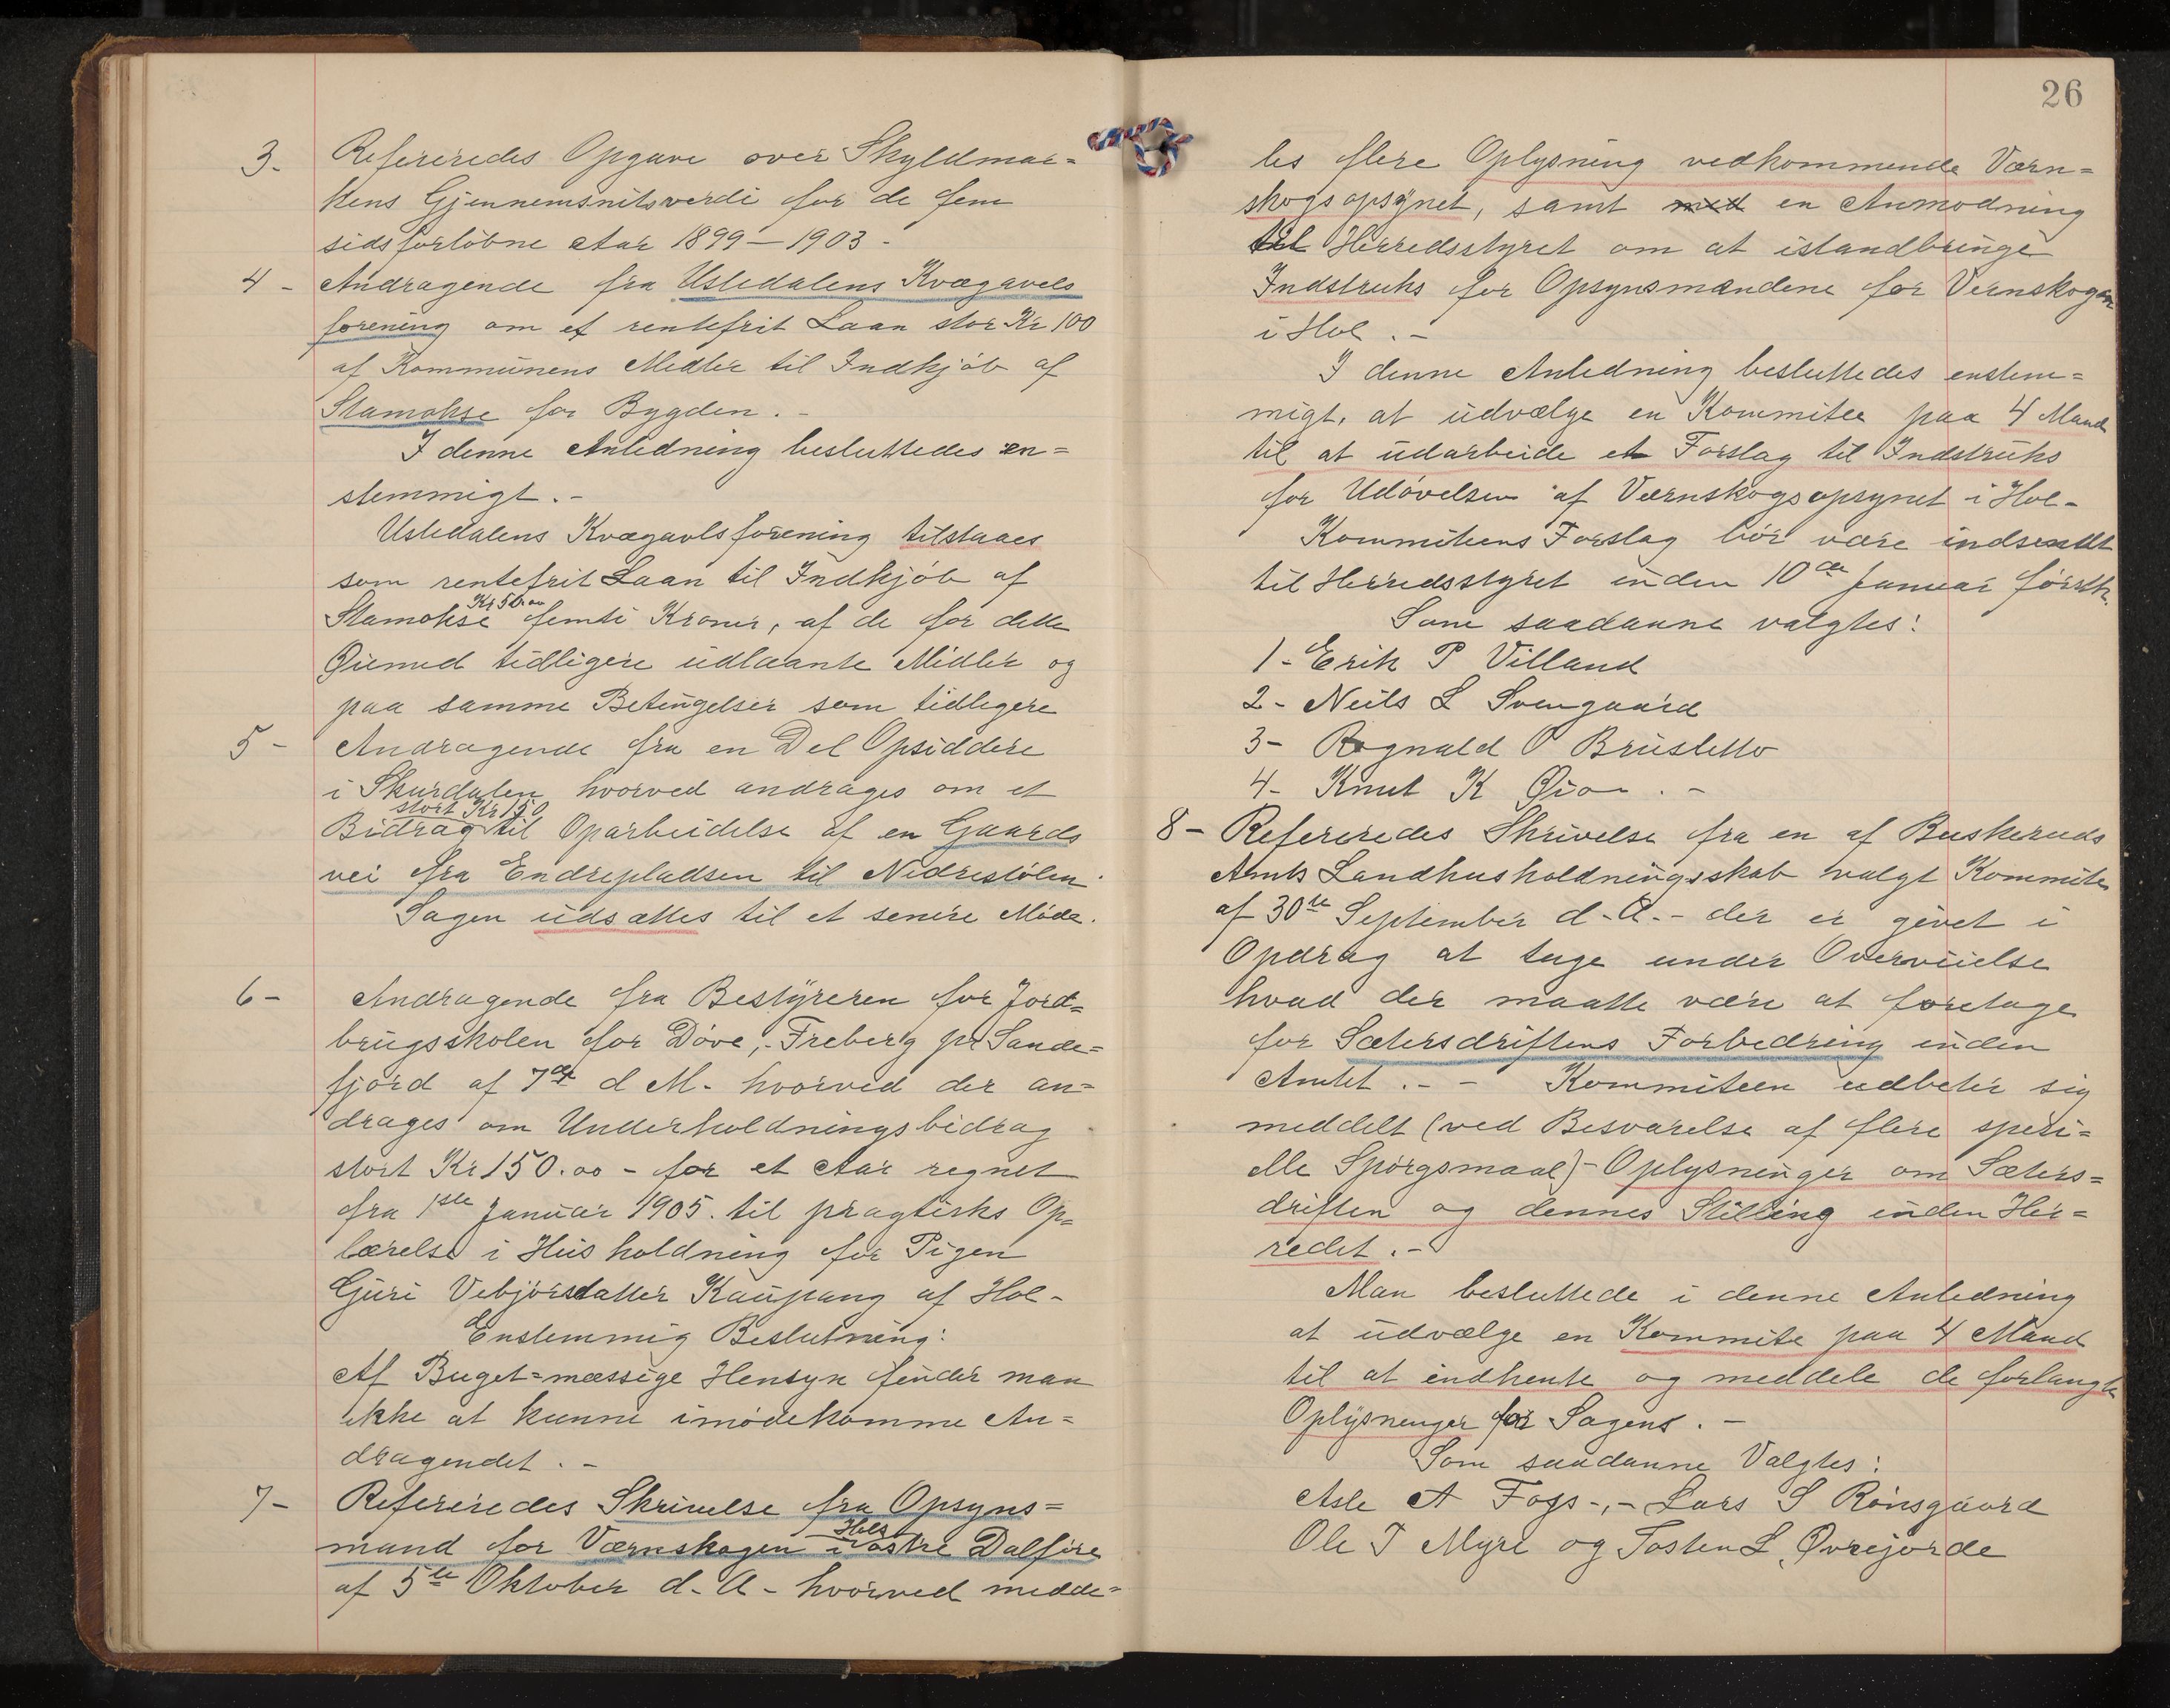 3. Refereredes Opgave over Skyldmar=
kens Gjennemsnitsverdi for de fem
sidsforløbne Aar 1899 – 1903 -
4 - Andragende fra Ustedalens Kvægavels
forening om et rentefrit Laan stor Kr 100
af Kommunens Midler til Indkjøb af
Stamokse for Bygden. -
I denne Anledning besluttedes en=
stemmigt. -
Ustedalens Kvægavlsforening tilstaaes
som rentefrit Laan til Indkjøb af
Stamokse Kr 50.00 femti Kroner, af de for dette
Øiemed tidligere udlaante Midler og
paa samme Betingelser som tidligere
5 - Andragende fra en Del Opsiddere
i Skurdalen hvorved andrages om et
Bidrag stort Kr 150 til Oparbeidelse af en Gaards
vei fra Endrepladsen til Nedrestølen.
Sagen udsættes til et senere Møde.
6 - Andragende fra Bestyreren for Jord=
brugsskolen for Døve, Freberg pr Sande=
fjord af 7de d M. hvorved der an=
drages om Underholdningsbidrag
stort Kr 150.00 - for et Aar regnet
fra 1ste Januar 1905. til pragtisks Op=
lærelse i Husholdning for Pigen
Guri Vebjørsdatter Kaupang af Hol -
Enstemmig Beslutning:
Af Buget=mæssige Hensyn finder man
ikke at kunne imødekomme An=
dragendet. -
7 - Refereredes Skrivelse fra Opsyns=
mand for Værnskogen i Hols østre Dalføre
af 5te Oktober d. A - hvorved medde=
26
les flere Oplysning vedkommende Værn=
skogsopsynet, samt med en Anmodning
til Herredsstyret om at istandbringe
Indstruks for Opsynsmændene for Vernskogen
i Hol. -
I denne Anledning besluttedes enstem=
migt, at udvælge en Kommitee paa 4 Mand
til at udarbeide et Forslag til Indstruks
for Udøvelsen af Værnskogsopsynet i Hol -
Kommiteens Forslag bør være indsendt
til Herredsstyret inden 10de Januar førstk.
Som saadanne valgtes:
1 - Erik P Villand
2 - Neils L Svengaard
3 - Rognald O Brusletto
4 - Knut K Øio. -
8 - Refereredes Skrivelse fra en af Buskeruds
Amts Landhusholdningsskab valgt Kommite
af 30te September d. A. - der er givet i
Opdrag at tage under Overveielse
hvad der maatte være at foretage
for Sætersdriftens Forbedring inden
Amtet. - - Kommiteen udbeter sig
meddelt (ved Besvarelse af flere spesi=
elle Spørgsmaal) - Oplysninger om Sæters=
driften og dennes Stilling inden Her=
redet. -
Man besluttede i denne Anledning
at udvælge en Kommite paa 4 Mand
til at indhente og meddele de forlangte
Oplysninger for Sagens. -
Som saadanne Valgtes:
Asle A Fogs -, - Lars S Rønsgaard
Ole T Myre og Tosten L. Øvrejorde